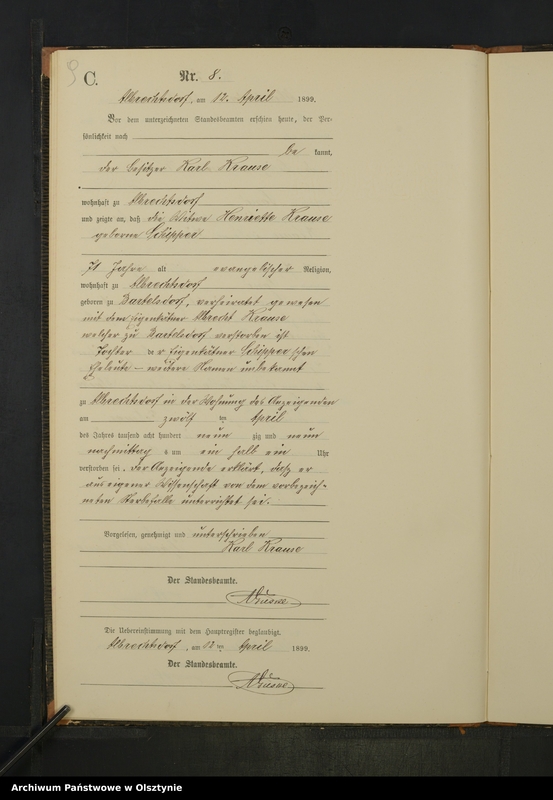 C. Nr. 8.
Albrechtsdorf, am 12. April 1899.
Vor dem unterzeichneten Standesbeamten erschien heute, der Per-
sönlichkeit nach
be kannt,
der Besitzer Karl Krause
wohnhaft zu Albrechtsdorf
und zeigte an, daß die Witwe Henriette Krause
geborene Schipper
71 Jahre alt evangelischer Religion,
wohnhaft zu Albrechtsdorf
geboren zu Bartelsdorf, verheiratet gewesen
mit dem Eigenkätner Albrecht Krause
welcher zu Bartelsdorf verstorben ist
Tochter der Eigenkätner Schipper'schen
Eheleute – weitere Namen unbekannt
zu Albrechtsdorf in der Wohnung des Anzeigenden
am zwölf ten April
des Jahres tausend acht hundert neun zig und neun
nachmittag s um ein halb ein Uhr
verstorben sei. Der Anzeigende erklärt, daß er
aus eigener Wissenschaft von dem vorbezeich-
neten Sterbefalle unterrichtet sei.
Vorgelesen, genehmigt und unterschrieben
Karl Krause
Der Standesbeamte.
Die Uebereinstimmung mit dem Hauptregister beglaubigt.
Albrechtsdorf, am 12 ten April 1899.
Der Standesbeamte.
Archiwum Państwowe w Olsztynie